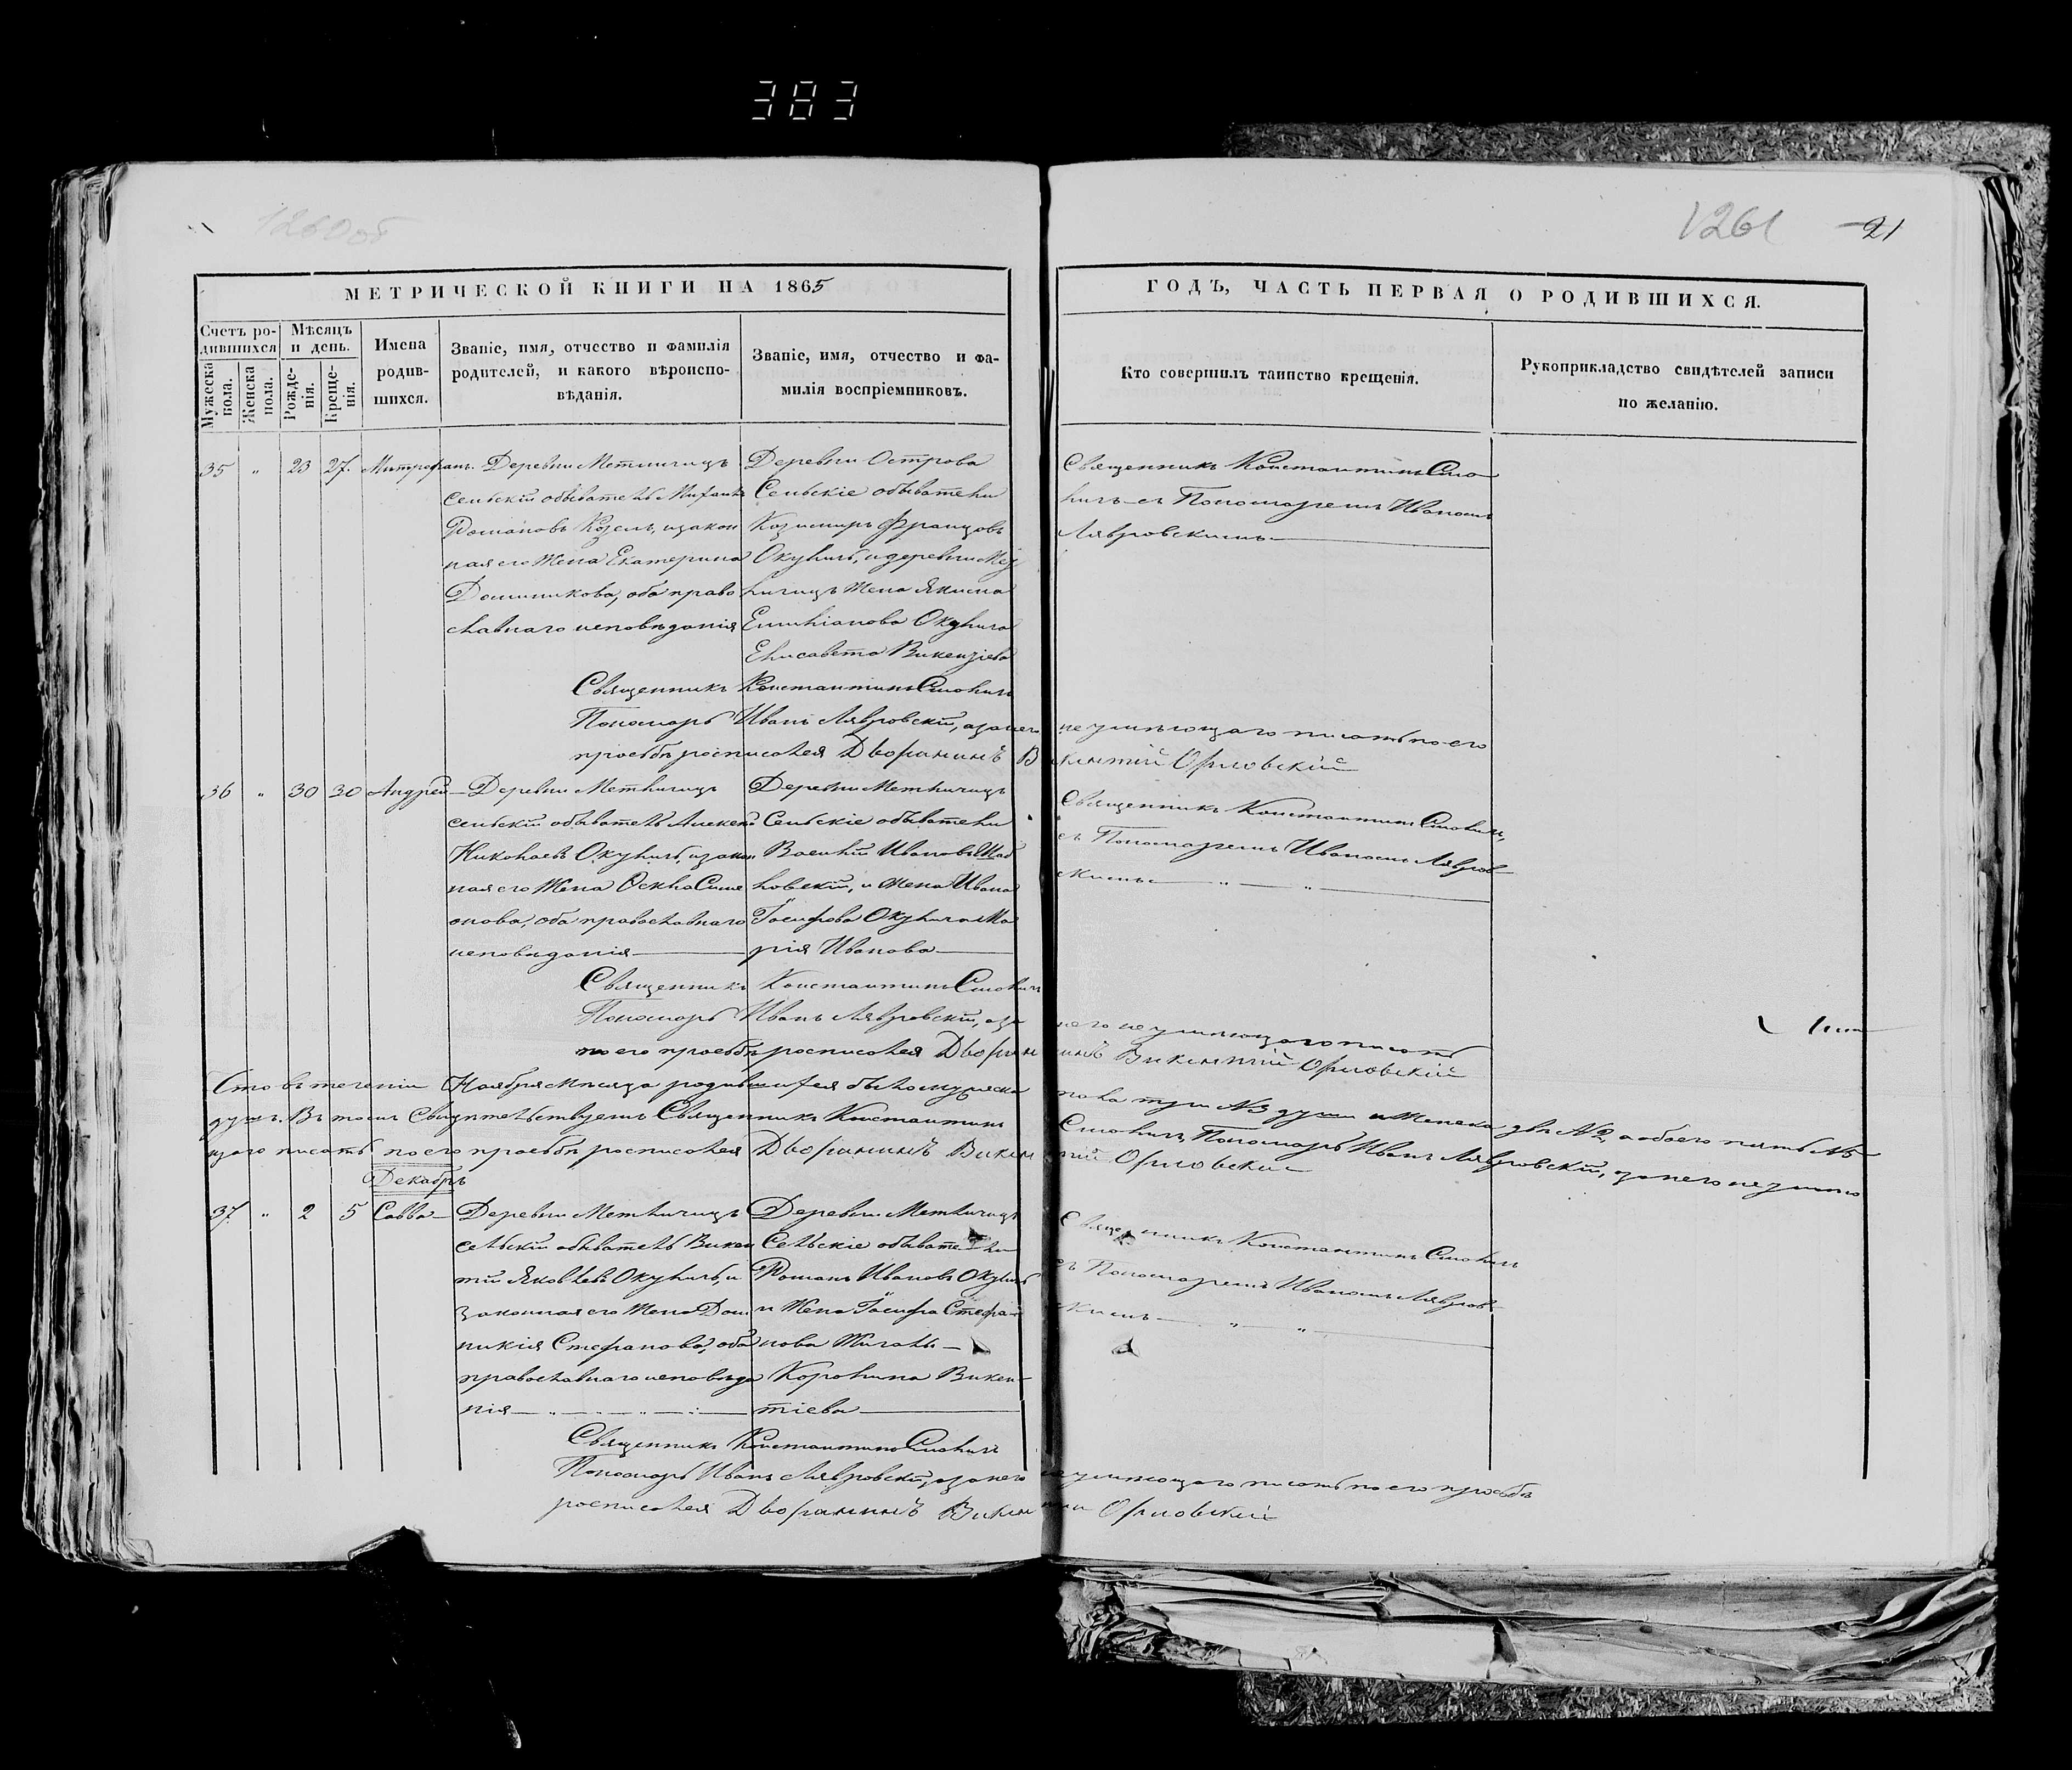 383
1260об
1261 21
МЕТРИЧЕСКОЙ КНИГИ НА 1865
ГОДЪ, ЧАСТЬ ПЕРВАЯ О РОДИВШИХСЯ.
Счетъ ро-
дившихся
Мужеска
пола.
Женска
пола.
Мѣсяцъ
и день.
Рожде-
нія.
Креще-
нія.
Имена
родив-
шихся.
Званіе, имя, отчество и фамилія
родителей, и какого вѣроиспо-
вѣданія.
Званіе, имя, отчество и фа-
милія воспріемниковъ.
Кто совершилъ таинство крещенія.
Рукоприкладство свидѣтелей записи
по желанію.
35 " 23 27. Митрофанъ.
Деревни Метличицъ
сельскій обыватель
Романовъ Козелъ, и закон
ная его жена Екатерина
Доминикова, оба право
славнаго исповѣданія
Деревни Острова
Сельскіе обыватели
Казимиръ Францовъ
Окуличъ, и деревни Мет
личицъ жена Якима
Емиліанова Окулича
Елисавета Викензіева
Священникъ Константинъ Смо
личъ съ Пономаремъ Иваномъ
Лавровскимъ
Священникъ Константинъ Смоличъ
Пономарь Иванъ Лавровскій, а за него неумѣющаго писать по его
просьбѣ росписался Дворянинъ Викентій Орловскій
36 " 30 30 Андрей
Деревни Метличицъ
сельскій обыватель Алекс
Николаевъ Окуличъ, и закон
ная его жена Фекла Симе
онова, оба православнаго
исповѣданія
Деревни Метличицъ
Сельскіе обыватели
Василій Ивановъ
ковскій, и жена Ивана
Іосифова Окулича Ма
рія Иванова
Священникъ Константинъ Смоличъ,
съ Пономаремъ Иваномъ Лавров
скимъ
Священникъ Константинъ Смоличъ
Пономарь Иванъ Лавровскій, а за него неумѣющаго писать
по его просьбѣ росписался Дворянинъ Викентій Орловскій
Что въ теченіи Ноября мѣсяца родившихся было мужеска пола три №3 души и женска двѣ №2, а обоего пять №5
душъ. Въ томъ свидѣтельствуемъ Священникъ Константинъ Смоличъ, Пономарь Иванъ Лавровскій, за него неумѣю
щаго писать по его просьбѣ росписался Дворянинъ Викентій Орловскій
Декабрь
37. " 2 5 Савва
Деревни Метличицъ
сельскій обыватель Викен
тій Яковлевъ Окуличъ, и
законная его жена Дом
никія Стефанова, оба
православнаго исповѣда
нія
Деревни Метличицъ
Сельскіе обыватели
Романъ Ивановъ Окуличъ
и жена Іосифа Стефа
нова Жигалы
Каролина Викен
тіева
Священникъ Константинъ Смоличъ
съ Пономаремъ Иваномъ Лавров
скимъ
Священникъ Константинъ Смоличъ
Пономарь Иванъ Лавровскій, а за него неумѣющаго писать по его просьбѣ
росписался Дворянинъ Викентій Орловскій